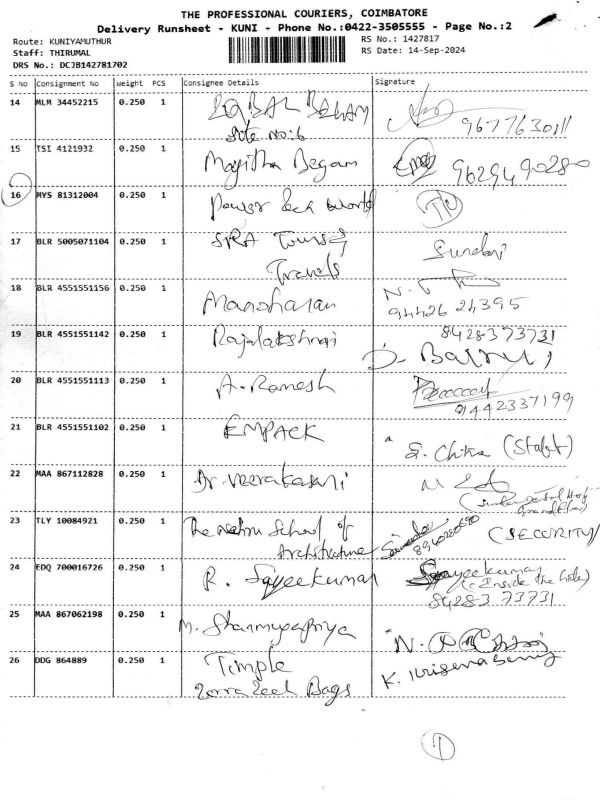 THE PROFESSIONAL COURIERS, COIMBATORE
Delivery Runsheet - KUNI - Phone No.:0422-3505555 - Page No.:2
Route: KUNIYAMUTHUR
RS No.: 1427817
Staff: THIRUMAL
RS Date: 14-Sep-2024
DRS No.: DCJB142781702
S No Consignment No Weight PCS Consignee Details Signature
14 MLM 34452215 0.250 1 IQBAL BEGAM
Site No:6
9677630111
15 TSI 4121932 0.250 1 Majitha Begam 9629490280
16 MYS 81312004 0.250 1 Power Tech World
17 BLR 5005071104 0.250 1 SRA Tours & Sundari
Travels
18 BLR 4551551156 0.250 1 Manoharan
94426 24395
19 BLR 4551551142 0.250 1 Rajalakshmi 8428373731
20 BLR 4551551113 0.250 1 A. Ramesh
9442337199
21 BLR 4551551102 0.250 1 EMPACK S. Chitra
22 MAA 867112828 0.250 1 Dr. Veerakesari
23 TLY 10084921 0.250 1 The Nehru School of
Architecture 8940280580 (SECURITY)
24 EDQ 700016726 0.250 1 R. Sajeekumar Sajeekumar
(Inside the Gate)
84283 73731
25 MAA 867062198 0.250 1 M. Shanmugapriya
26 DDG 864889 0.250 1 Timple
Bags